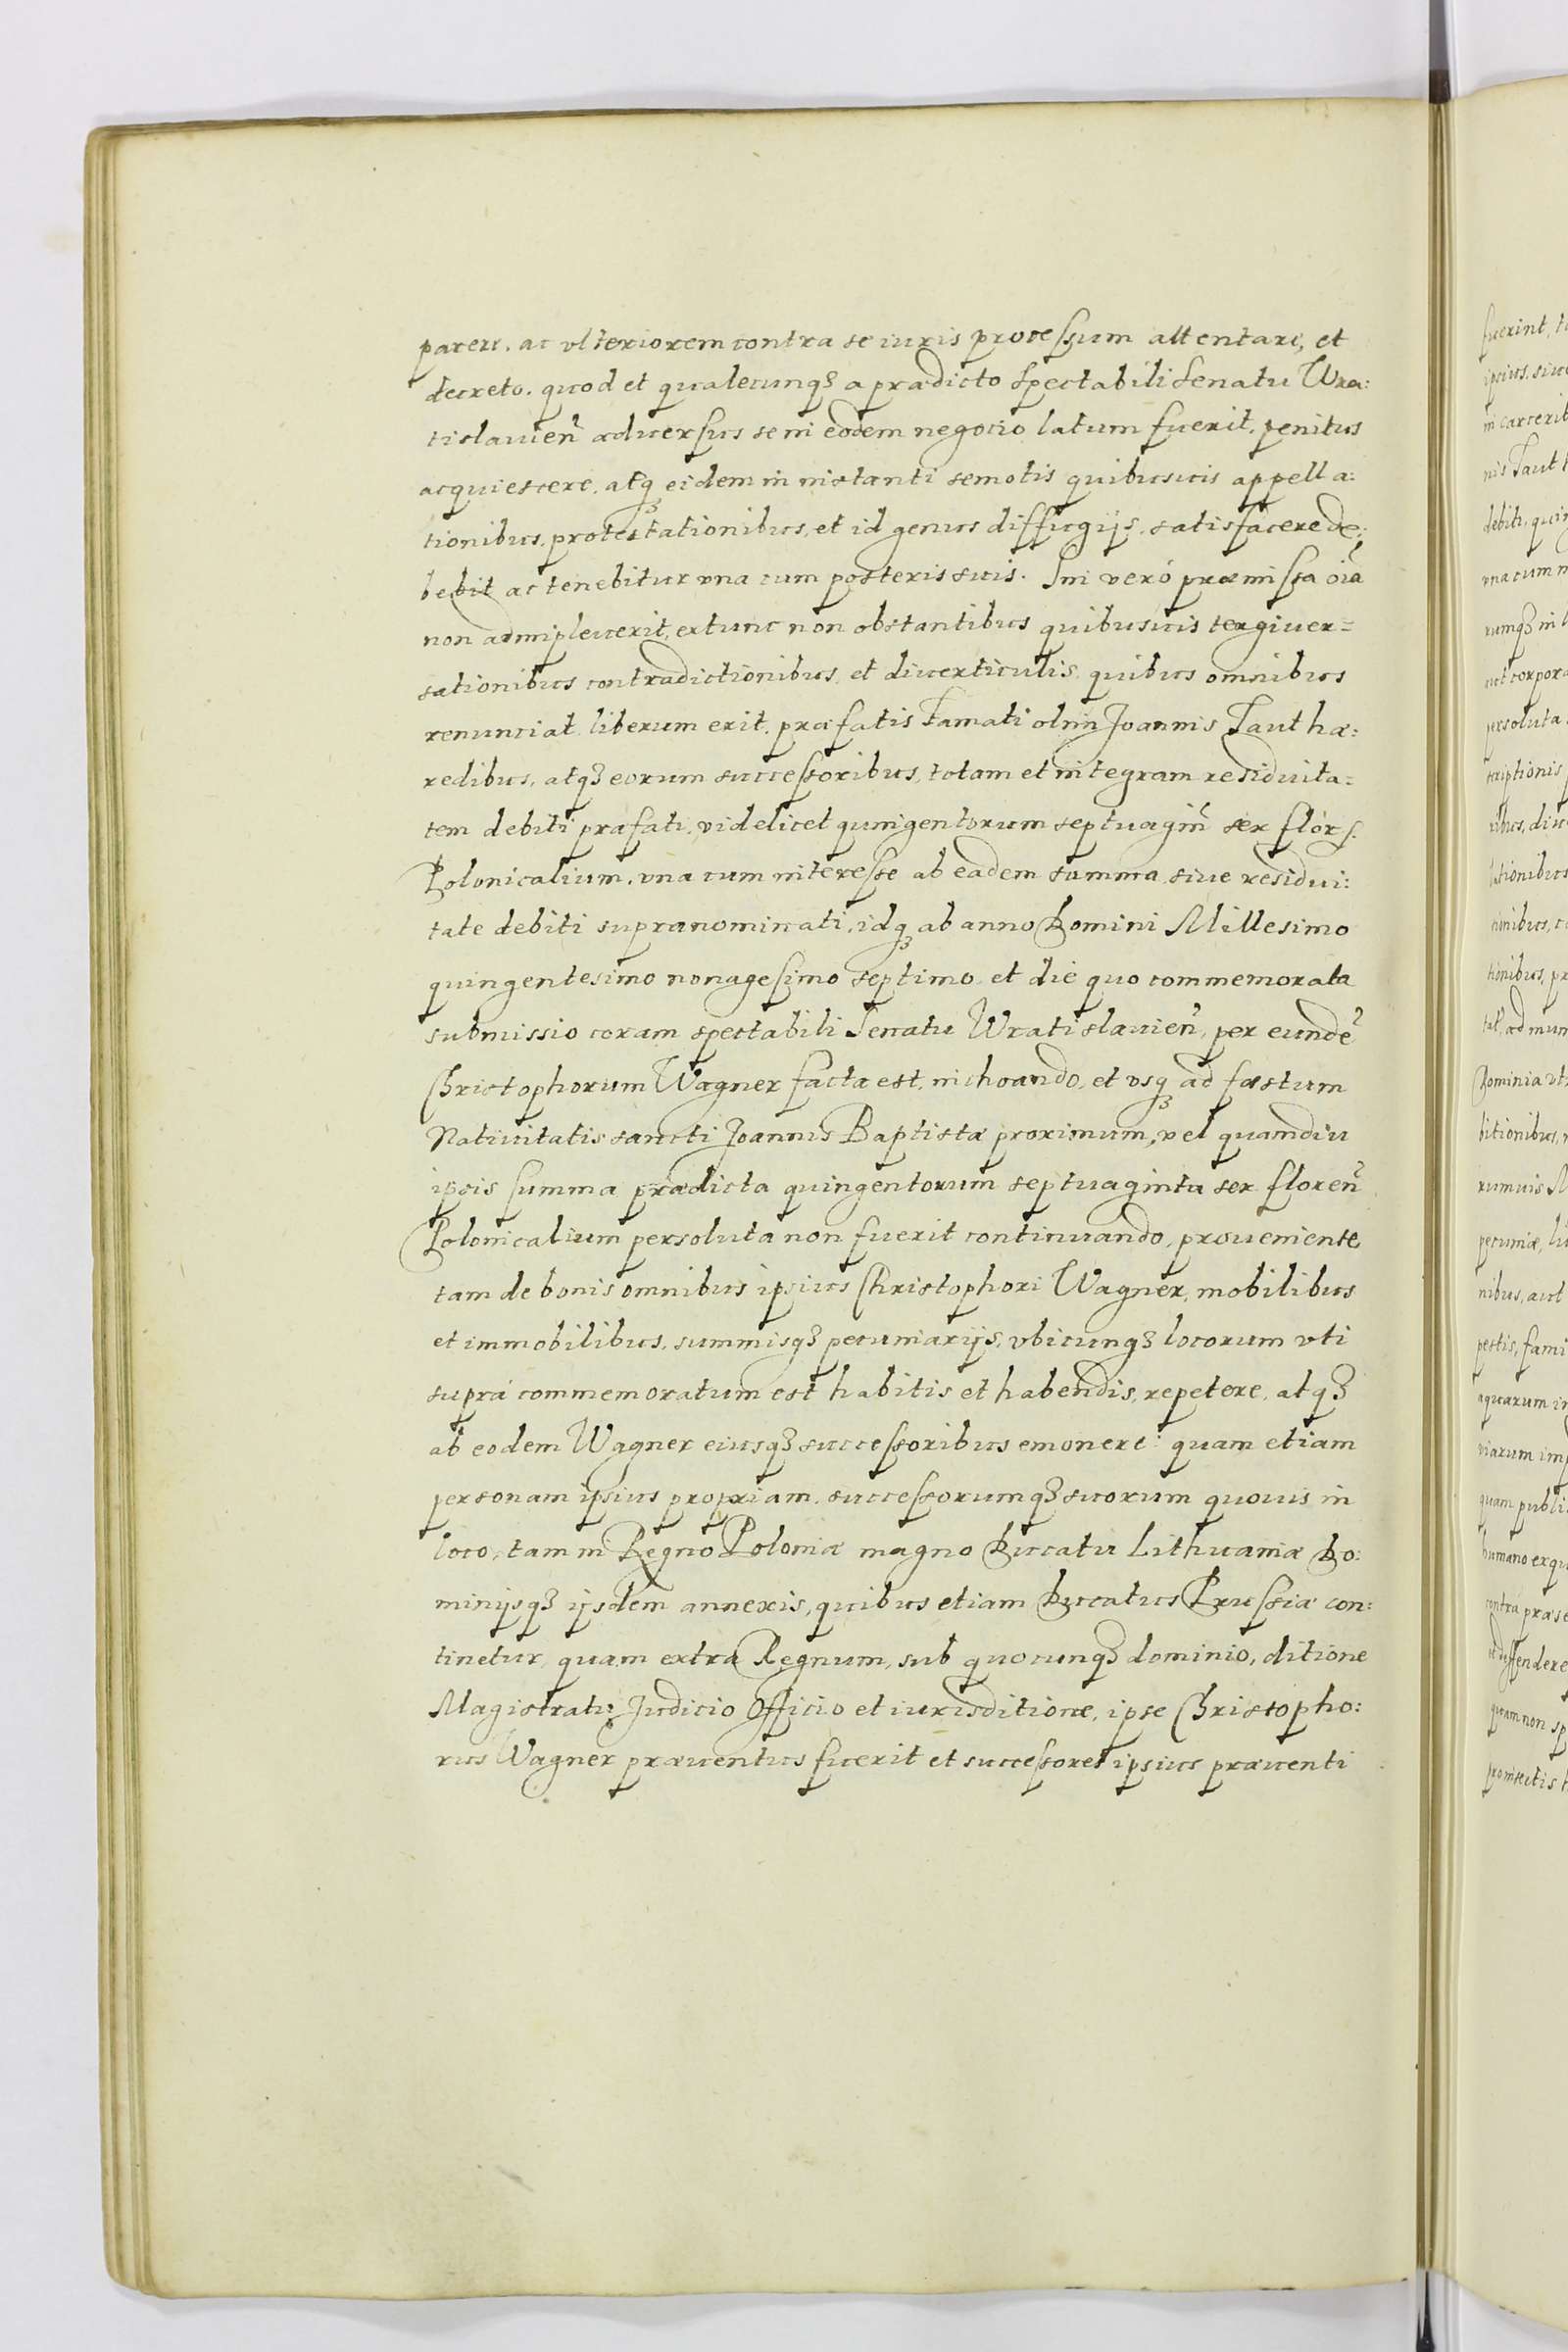 parere, ac vlteriorem contra se iuris processum attentare, et
decreto, quod et qualecunq3 a prædicto Spectabili Senatu Wra:
tislauien̄ aduersus se in eodem negocio latum fuerit, penitus
acquiescere, atq3 eidem in instanti semotis quibusuis appella:
tionibus, protestationibus, et id genus diffugijs, satisfacere de:
bebit ac tenebitur vna cum posteris suis. Sin veró præmissa oīa
non adimpleuerit, extunc non obstantibus quibusuis tergiuer=
sationibus contradictionibus, et diuerticulis, quibus omnibus
renunciat, liberum erit, præfatis Famati olim Joannis Taut hæ:
redibus, atq3 eorum successoribus, totam et integram residuita=
tem debiti præfati, videlicet quingentorum septuagin̄ sex flor.
Polonicalium, vna cum interesse ab eadem summa siue residui:
tate debiti supranominati, idq3 ab anno Domini Millesimo
quingentesimo nonagesimo septimo et die quo commemorata
submissio coram spectabili Senatu Wratislauien̄, per eundē
Christophorum Wagner facta est, inchoando, et vsq3 ad festum
Natiuitatis sancti Joannis Baptistæ proximum, vel quamdiu
ipsis summa prædicta quingentorum septuaginta sex floren̄
Polonicalium persoluta non fuerit continuando, proueniente,
tam de bonis omnibus ipsius Christophori Wagner, mobilibus
et immobilibus, summisq3 pecuniarijs, vbicunq3 locorum vti
suprá commemoratum est habitis et habendis, repetere, atq3
ab eodem Wagner eiusq3 successoribus emonere: quam etiam
personam ipsius propriam, successorumq3 suorum quouis in
loco, tam in Regno Poloniæ magno Ducatu Lithuaniæ Do:
minijsq3 ijsdem annexis, quibus etiam Ducatus Prussiæ con:
tinetur, quam extra Regnum, sub quocunq3 dominio, ditione
Magistratu, Judicio Officio et iurisditione, ipse Christopho:
rus Wagner præuentus fuerit et successores ipsius præuenti